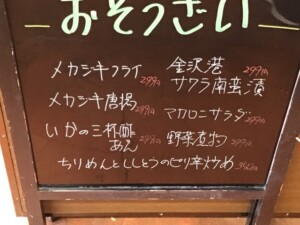 おそうざい
メカジキフライ 299円
金沢港
サワラ南蛮漬 299円
メカジキ唐揚 299円
マカロニサラダ 299円
いかの三杯酢
あん 299円
野菜煮物 299円
ちりめんとししとうのピリ辛炒め